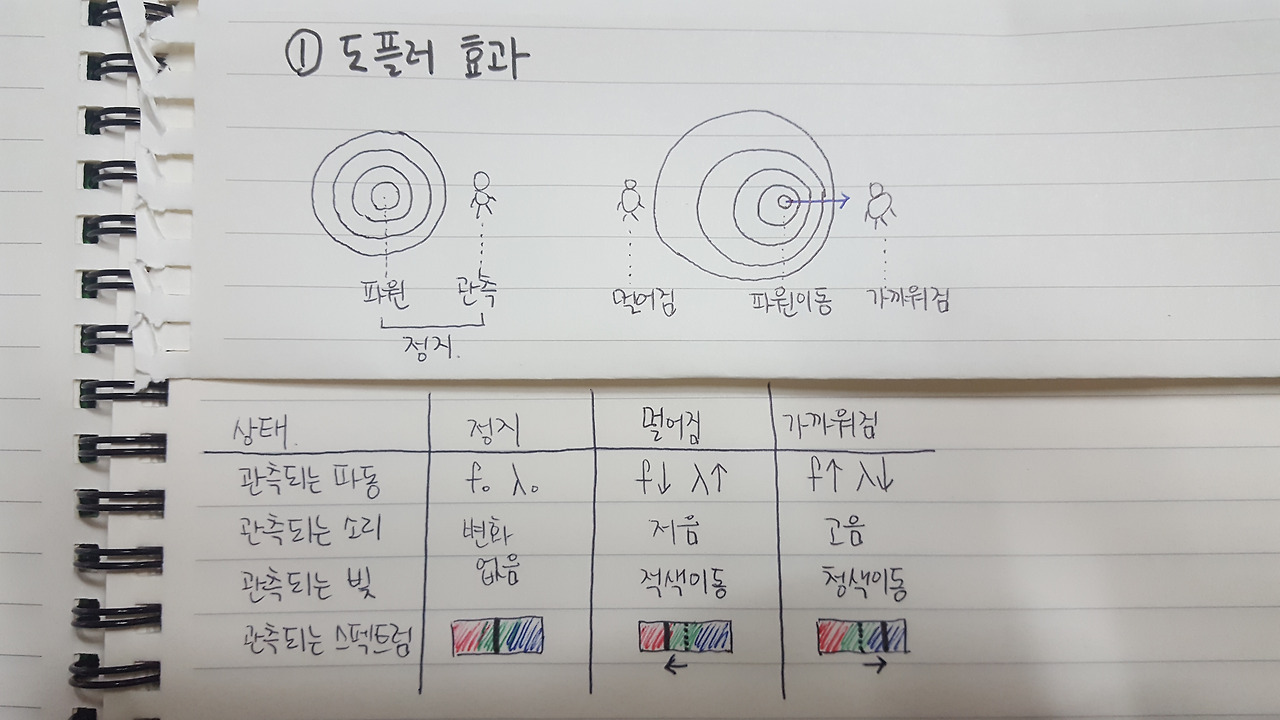 ① 도플러 효과
파원 관측 멀어짐 파원이동 가까워짐
정지.
상태. 정지 멀어짐 가까워짐
관측되는 파동 f₀ λ₀ f↓ λ↑ f↑ λ↓
관측되는 소리 변화 저음 고음
없음
관측되는 빛 적색이동 청색이동
관측되는 스펙트럼